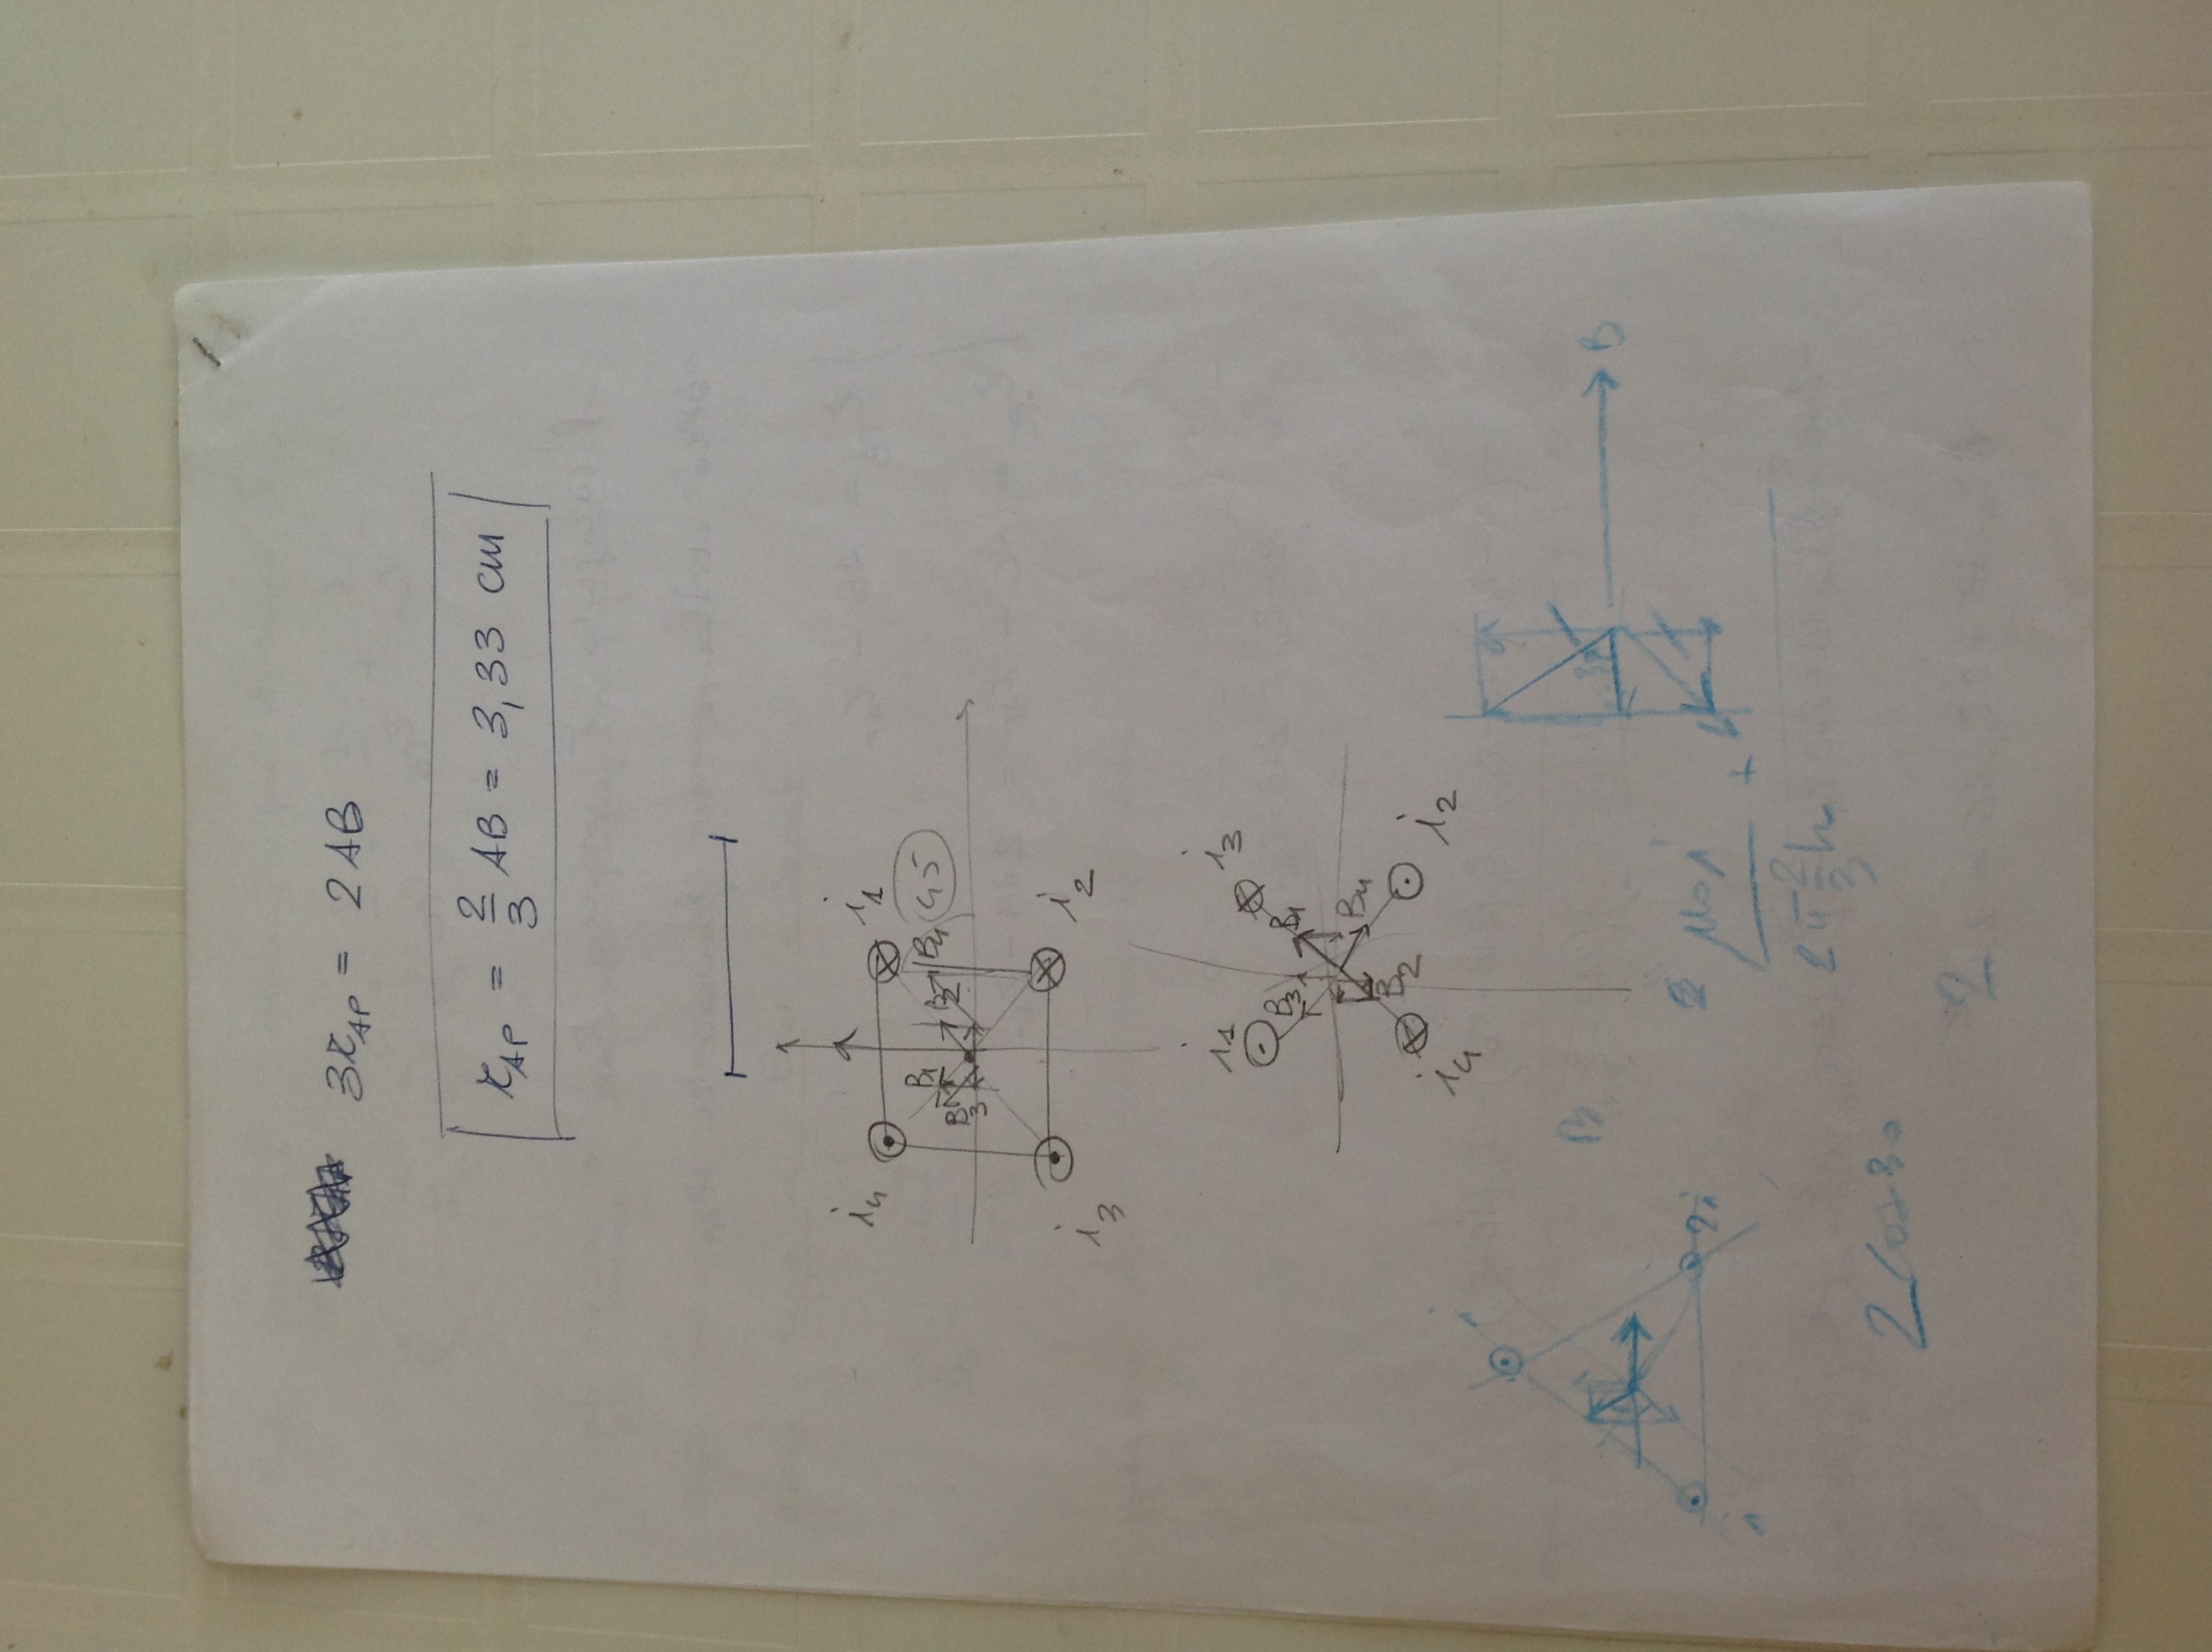 3r_AP = 2AB
r_AP = 2/3 AB = 3,33 cm
i4 i1
B1 B2 B4 45
B3
i3 i2
i1 i3
B3 B1
B4
B2
i4 i2
i
B 30 B
i 2i
2 μ0i / 2π 2/3 h +
2 cos 30
2